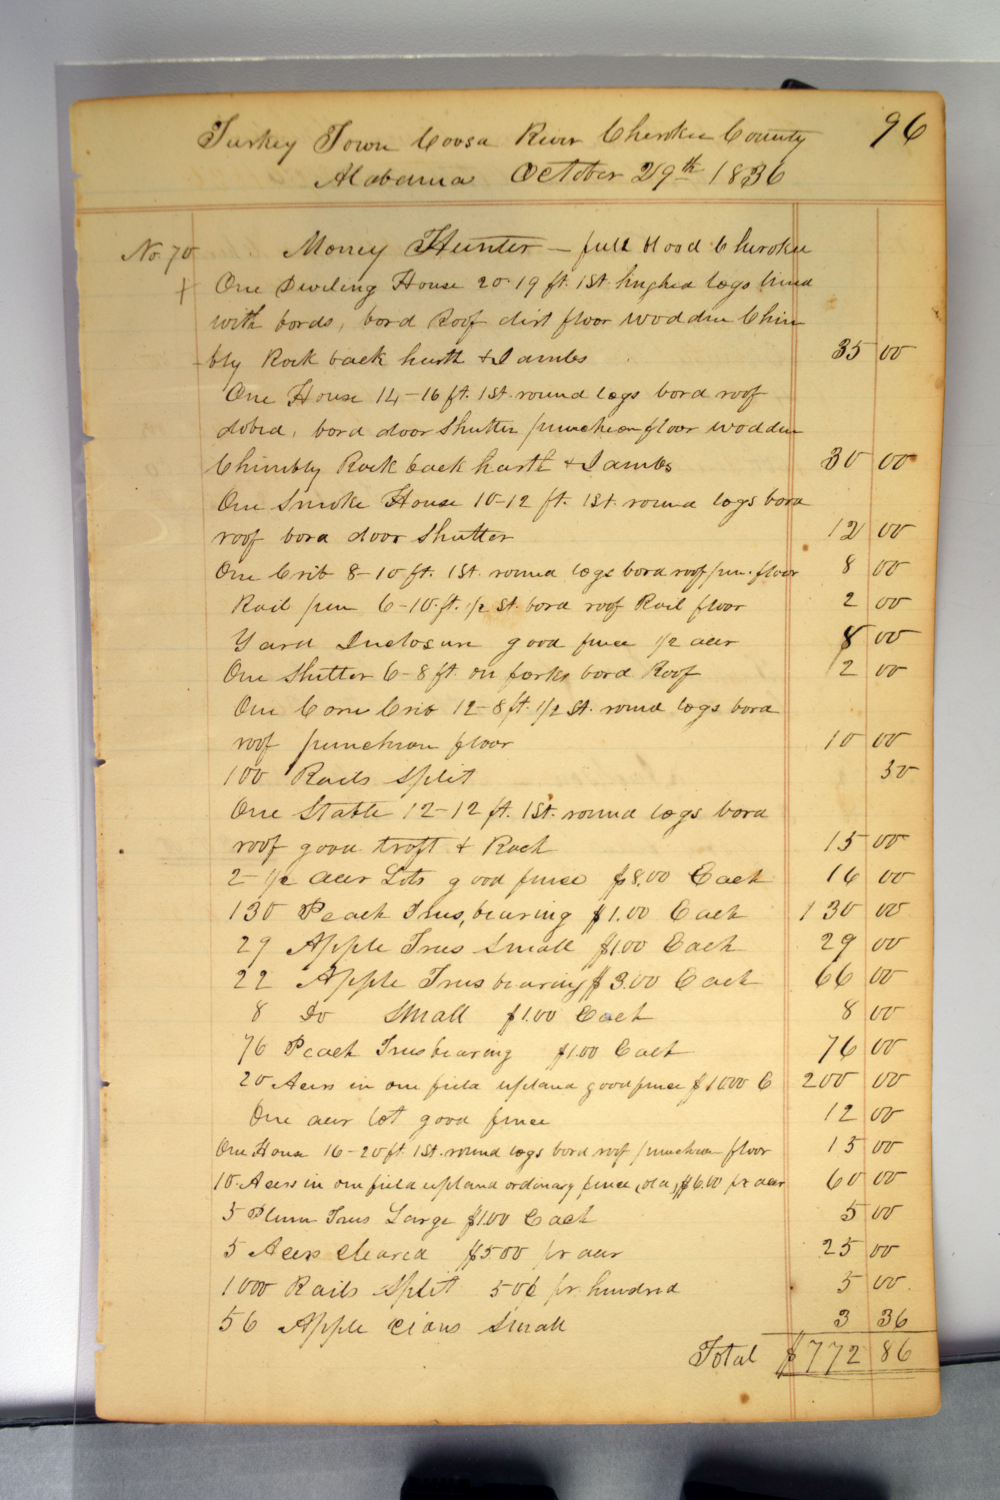 96
Turkey Town Coosa River Cherokee County
Alabama October 29th 1836
No. 70 Money Hunter — full blood Cherokee
+ One Dweling House 20-19 ft. 1 St. hughed logs lined
with bords, bord Roof dirt floor wodden Chim
bly Rock back harth & Jambs 35 00
One House 14-16 ft. 1 St. round logs bord roof
dobed, bord door Shutter puncheon floor wodden
Chimbly Rock back harth & Jambs 30 00
One Smoke House 10-12 ft. 1 St. round logs bord
roof bord door Shutter 12 00
One Crib 8-10 ft. 1 St. round logs bord roof pun. floor 8 00
Rail pen 6-10 ft. 1/2 St. bord roof Rail floor 2 00
Yard Inclosure good fence 1/2 acer 8 00
One Shetter 6-8 ft. on forks bord Roof 2 00
One Corn Crib 12-8 ft. 1/2 St. round logs bord
roof puncheon floor 10 00
100 Rails Split 50
One Stable 12-12 ft. 1 St. round logs bord
roof good troft & Rack 15 00
2-1/2 acer Lots good fence $8.00 Each 16 00
130 Peach Trees, bearing $1.00 Each 130 00
29 Apple Trees Small $1.00 Each 29 00
22 Apple Trees bearing $3.00 Each 66 00
8 Do Small $1.00 Each 8 00
76 Peach Trees bearing $1.00 Each 76 00
20 Acers in one field upland good fence $10.00 E 200 00
One acer lot good fence 12 00
One House 16-20 ft. 1 St. round logs bord roof puncheon floor 15 00
10 Acers in one field upland ordinary fence, old, $6.00 pr acer 60 00
5 Plum Trees Large $1.00 Each 5 00
5 Acers cleared $5.00 pr acer 25 00
1000 Rails Split 50¢ pr. hundred 5 00
56 Apple cions Small 3 36
Total $772 86